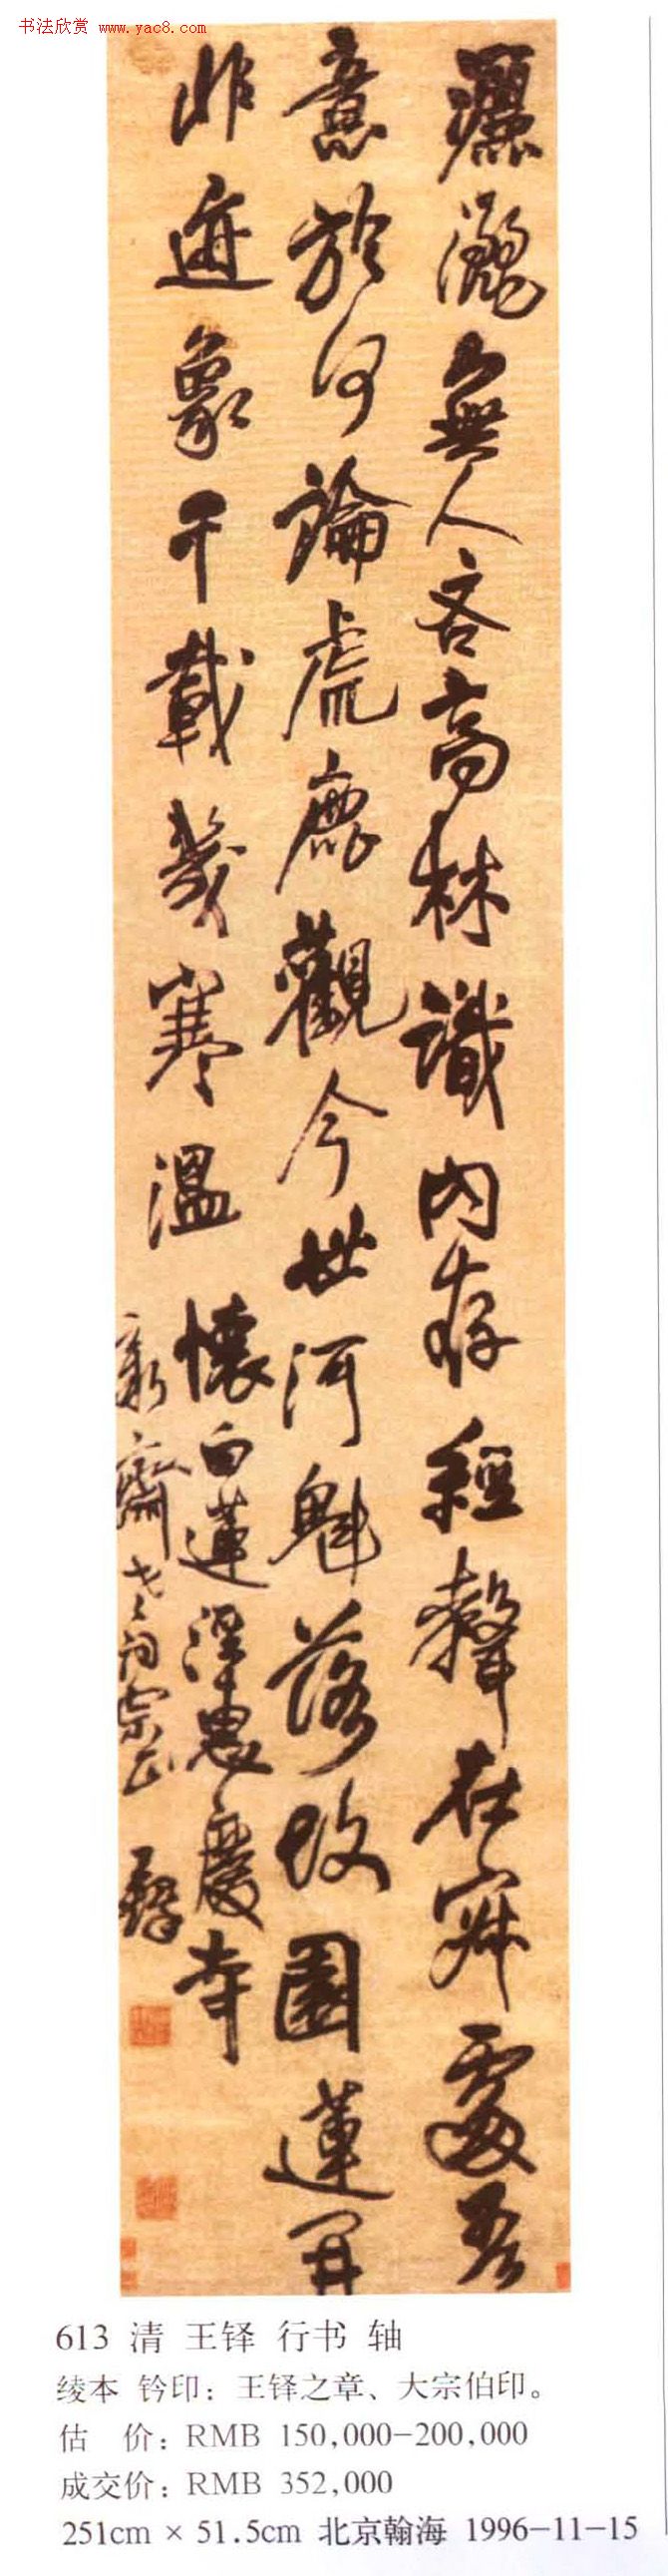 书法欣赏 www.yac8.com
灑灑無人吝高林識内存經聲在寂處吾
意於何論虎鹿觀今世河魁落故園蓮開
非迹象千載幾寒溫
懷白蓮涅惠慶寺
新齋老詞宗正 鐸
613 清 王铎 行书 轴
绫本 钤印：王铎之章、大宗伯印。
估 价：RMB 150,000-200,000
成交价：RMB 352,000
251cm × 51.5cm 北京翰海 1996-11-15